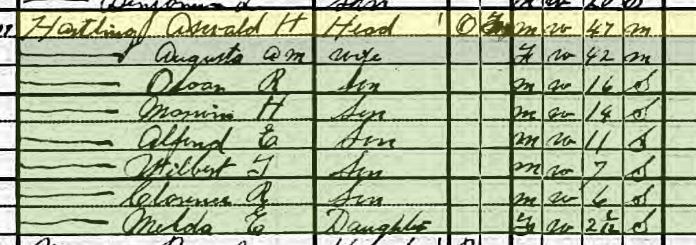 Son
Hartling Oswald H Head 1 O m w 47 m
Augusta wife F w 42 m
Oscar R Son m w 16 S
Marvin H Son m w 14 S
Alfred E Son m w 11 S
Wilbert Son m w 7 S
Clarence R Son m w 6 S
Melda E Daughter F w 2 S